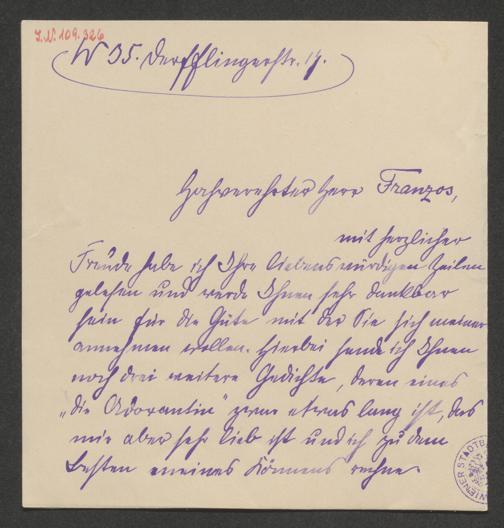 I.N. 109.326
W 35. Derfflingerstr. 17.
Hochverehrter Herr Franzos,
mit herzlicher
Freude habe ich Ihre liebenswürdigen Zeilen
gelesen und werde Ihnen sehr dankbar
sein für die Güte mit der Sie sich meiner
annehmen wollen. Hierbei sende ich Ihnen
noch drei weitere Gedichte, deren eines
„die Adorantin" zwar etwas lang ist, das
mir aber sehr lieb ist und ich zu dem
Besten meines Könnens rechne.
WIENER STADTB